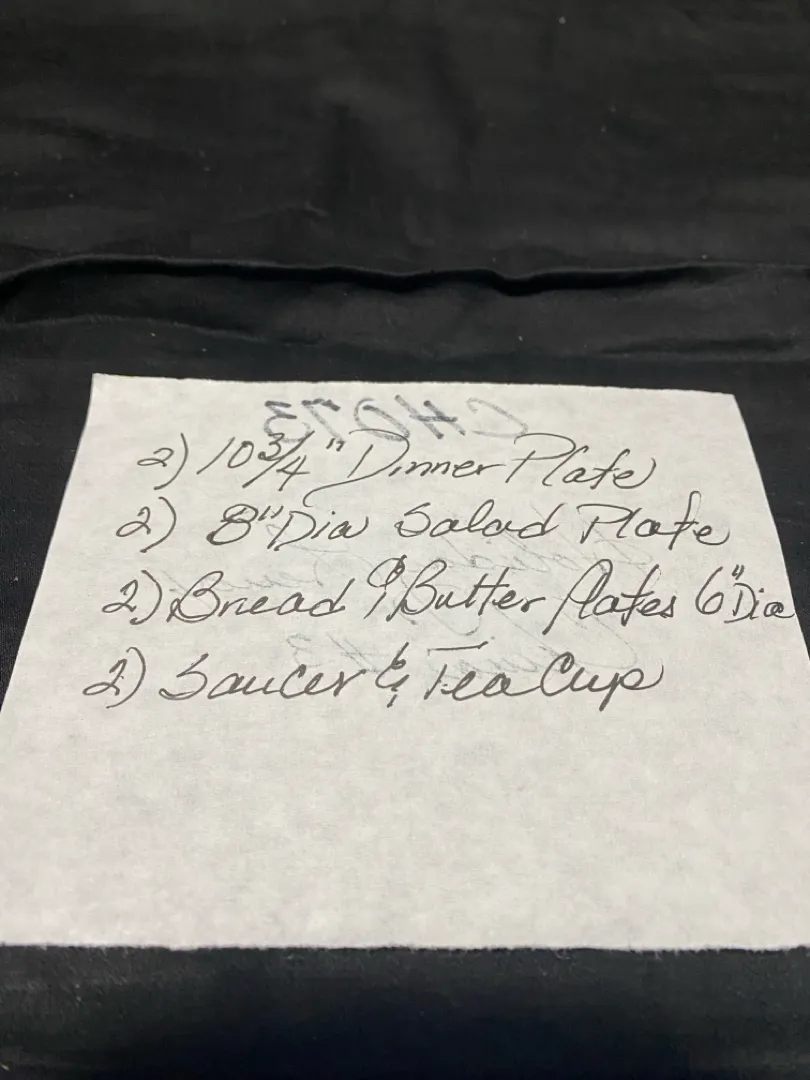 CH073
2) 10 3/4" Dinner Plate
2) 8" Dia Salad Plate
2) Bread & Butter Plates 6" Dia
2) Saucer & Tea Cup